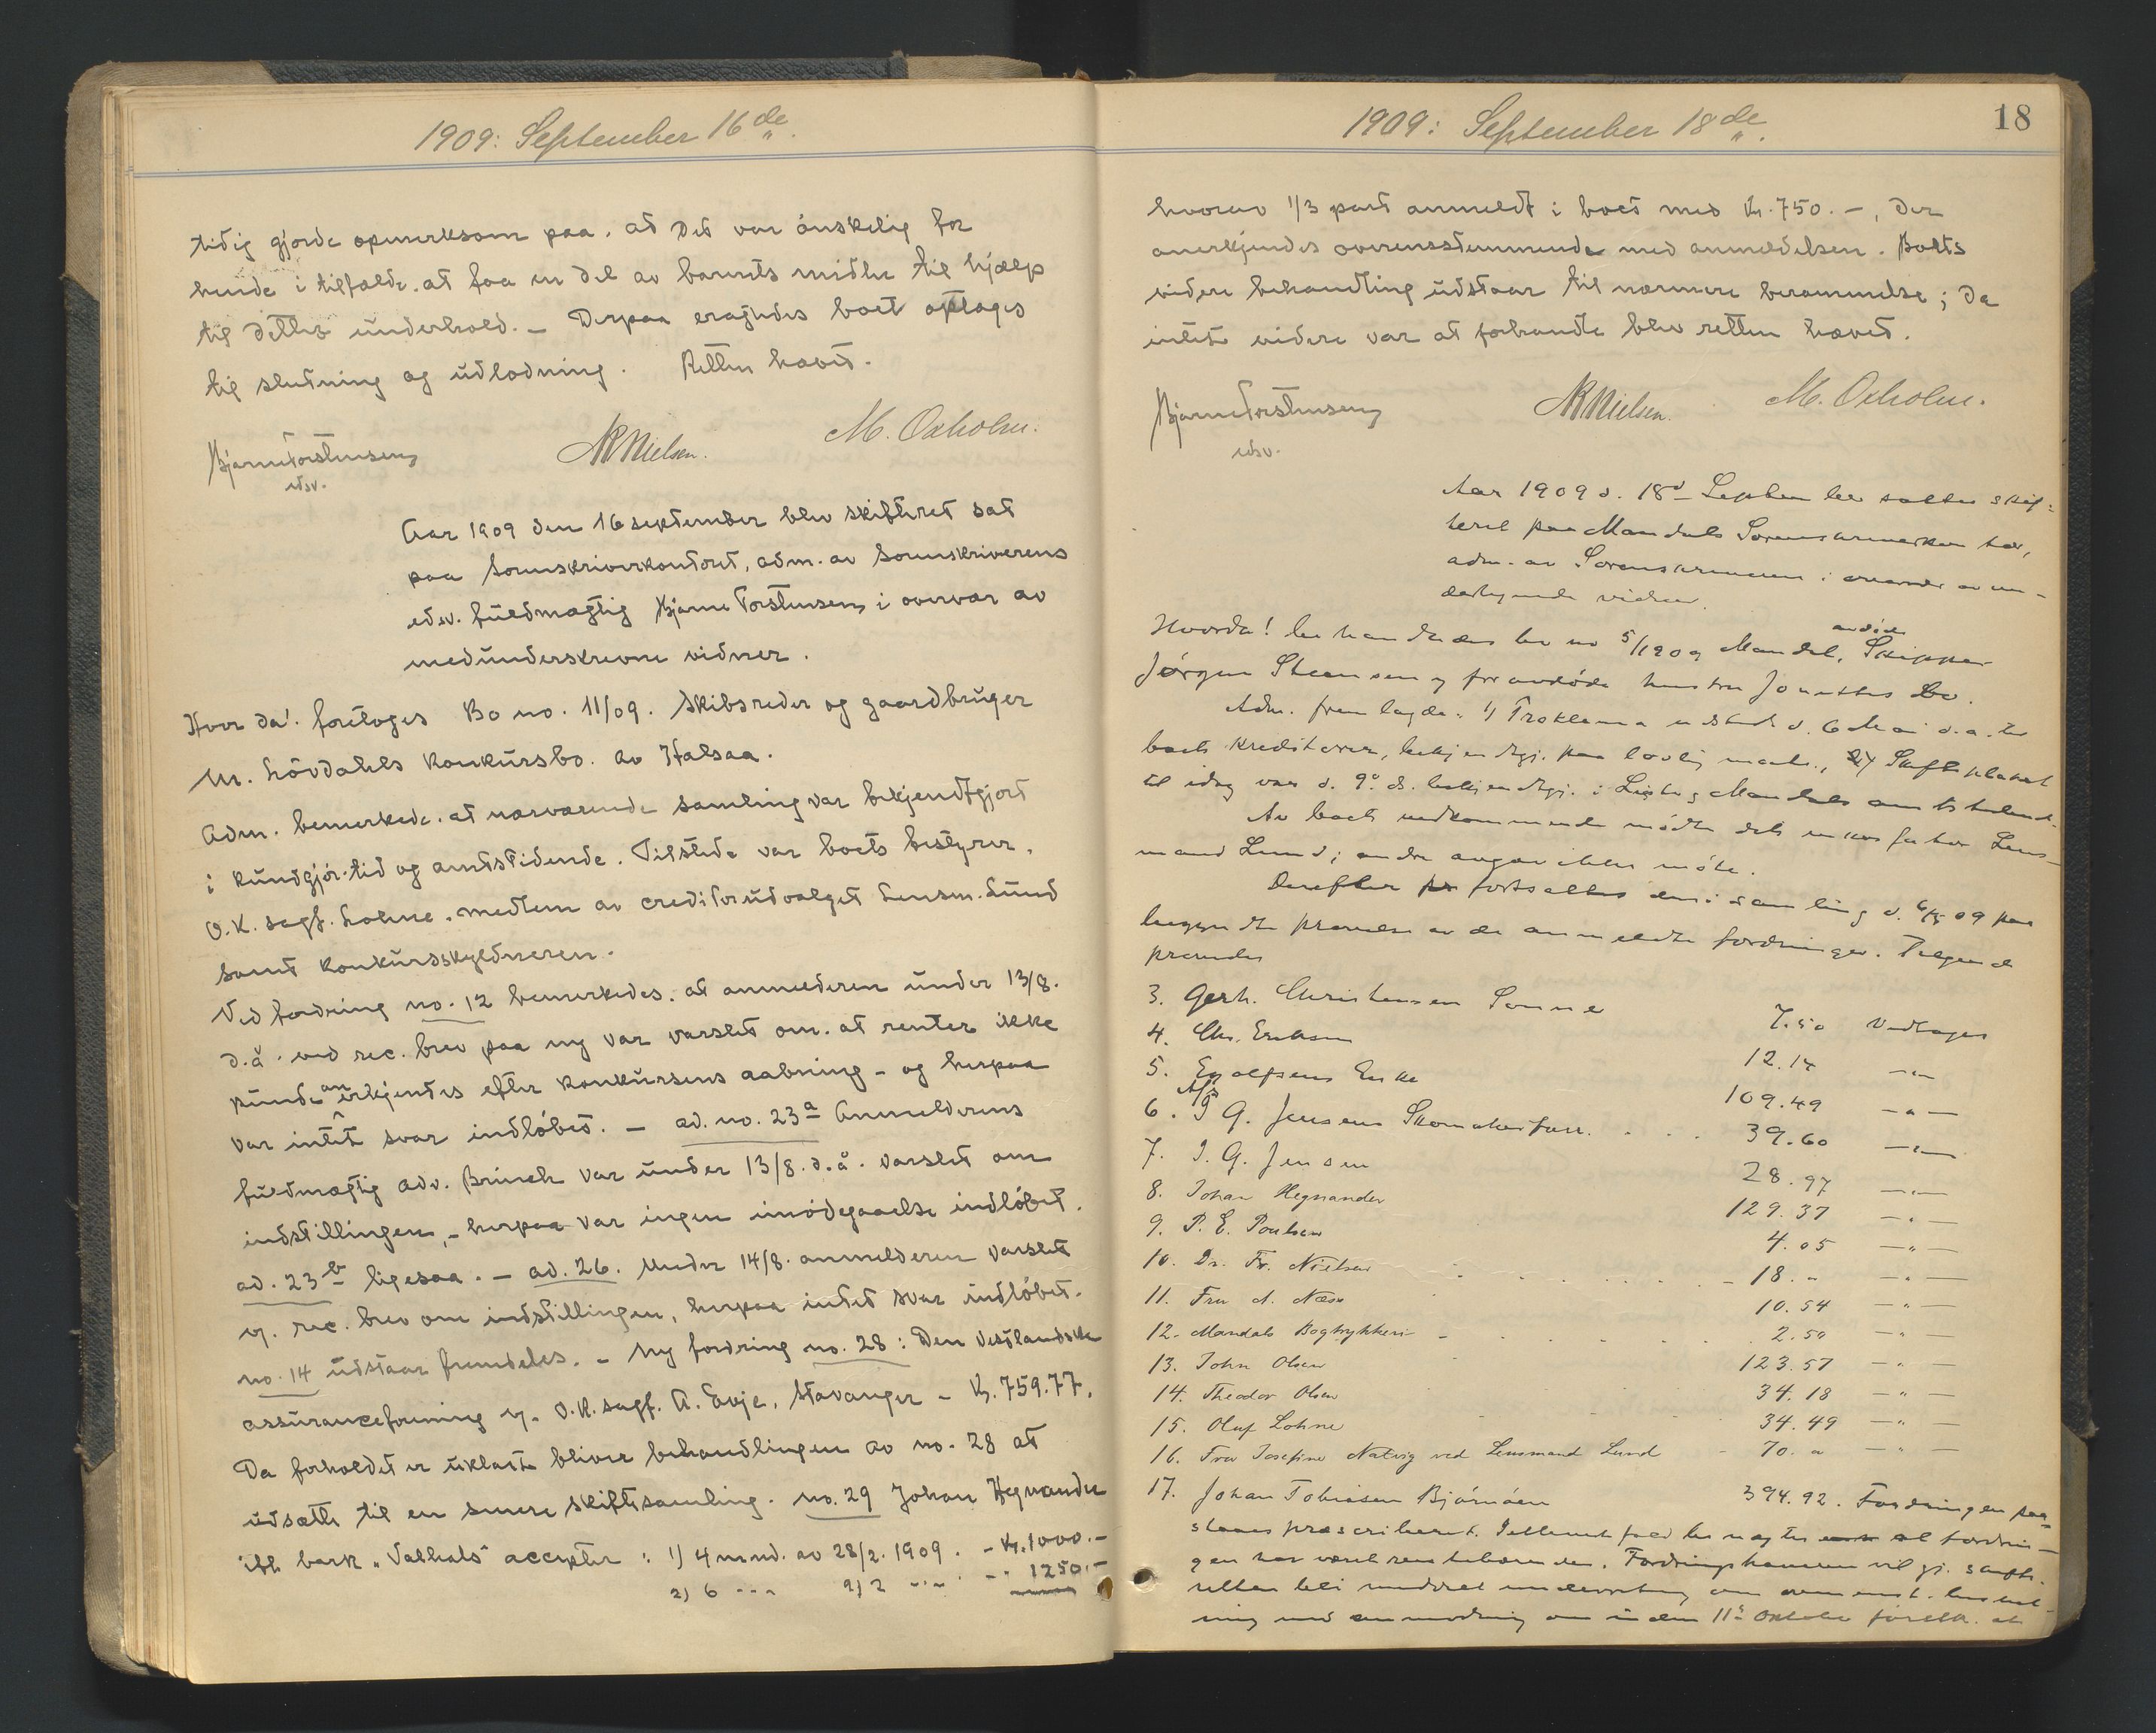 1909: September 16de
tidig gjorde opmerksom paa, at det var ønskelig for
hende i tilfælde, at faa en del av barnets midler til hjælp
til dettes underhold. — Derpaa eragtedes boet optages
til slutning og udlodning. Retten hævet.
Bjarne Torstensen NKNielsen. M. Oxholm.
edsv.
Aar 1909 den 16 september blev skifteret sat
paa Sorenskriverkontoret, adm. av Sorenskriverens
edsv. fuldmægtig Bjarne Torstensen, i overvær av
medunderskrevne vidner.
Hvor da! foretoges Bo no. 11/09. Skibsreder og gaardbruger
M. Løvdahls konkursbo av Halsaa.
Adm. bemerkede, at nærværende samling var bekjendtgjort
i kundgjør.tid og amtstidende. Tilstede var boets bestyrer,
O.R. sagf. Lohne, medlem av creditorudvalget Lensm. Lund
samt konkursskyldneren.
Ved fordring no. 12 bemerkedes, at anmelderen under 13/8.
d.å. ved rec. brev paa ny var varslet om, at renter ikke
kunde anerkjendes efter konkursens aabning – og herpaa
var intet svar indløbet. — ad. no. 23a Anmelderens
fuldmægtig adv. Brinch var under 13/8. d.å. varslet om
indstillingen, – herpaa var ingen imødegaaelse indløbet.
ad. 23b ligesaa. — ad. 26. Under 14/8. anmelderen varslet
v. rec. brev om indstillingen, herpaa intet svar indløbet.
no. 14 udstaar fremdeles. – Ny fordring no. 28: Den Vestlandske
assuranceforening v. O.R. sagf. A. Evje, Stavanger – Kr. 759.77.
Da forholdet er uklart bliver behandlingen av no. 28 at
udsætte til en senere skiftesamling. no. 29 Johan Hegnander
ifl. bark „Valhals" accepter: 1) 4 mnd. av 28/2. 1909. – Kr. 1000.–
2) 6 2) 2 1250.–
1909: September 18de. 18
hvorav 1/3 part anmeldt i boet med Kr. 750.–, der
anerkjendes overensstemmende med anmeldelsen. Boets
videre behandling udstaar til nærmere berammelse; da
intet videre var at forhandle blev retten hævet.
Bjarne Torstensen NKNielsen. M. Oxholm.
edsv.
Aar 1909 d. 18d September sattes skif-
teret paa Mandals Sorenskriverkontor,
adm. av Sorenskriveren i overvær av un-
dertegnede vidner.
Hvorda! behandledes bo no 5/1909 Mandal, avdøde Skipper
Jørgen Steensen og foravdøde hustru Jonettes Bo.
Adm. fremlagde: 1) Proklama udstedt d. 6 Mai d.a. til
boets kreditorer, bekjendtgj. paa lovlig maade, 2) Skifteplakat
til idag var d. 9. ds. bekjendtgj. i Lister og Mandals amtstidende.
Av boets vedkommende mødte dets inkassator Lens-
mand Lund; andre angav ikke møte.
Derefter fortsattes den i samling d. 6/5 09 paa
begyndte prøvelse av de anmeldte fordringer. Følgende
prøvedes
3. Gerh. Christensen Sønner 7.50 Vedtages
4. Chr. Eriksen 12.14 —"—
5. Egolfsens Enke 109.49 —"—
6. A/S J. G. Jensens Skomakerforr. . . . 39.60 —"—
7. J. G. Jensen 28.97 —"—
8. Johan Hegnander 129.37 —"—
9. P. E. Poulsen 4.05 —"—
10. Dr. Fr. Nielsen . . . . 18." —"—
11. Fru A. Næss 10.54 —"—
12. Mandals Bogtrykkeri – . . . 2.50 —"—
13. John Olsen 123.57 —"—
14. Theodor Olsen 34.18 —"—
15. Oluf Lohne 34.49 —"—
16. Fru Josefine Natvig ved Lensmand Lund – 70." —"—
17. Johan Tobiasen Bjørnøen 394.92. Fordringen paa-
staaes præscriberet. I ethvert fald benegtes at fordrin-
gen har været rentebærende. Fordringshaveren vil gj. skifte-
retten bli meddelt underretning om ovennevnt. beslut-
ning med anmodning om inden 11te Oktober førstk. at